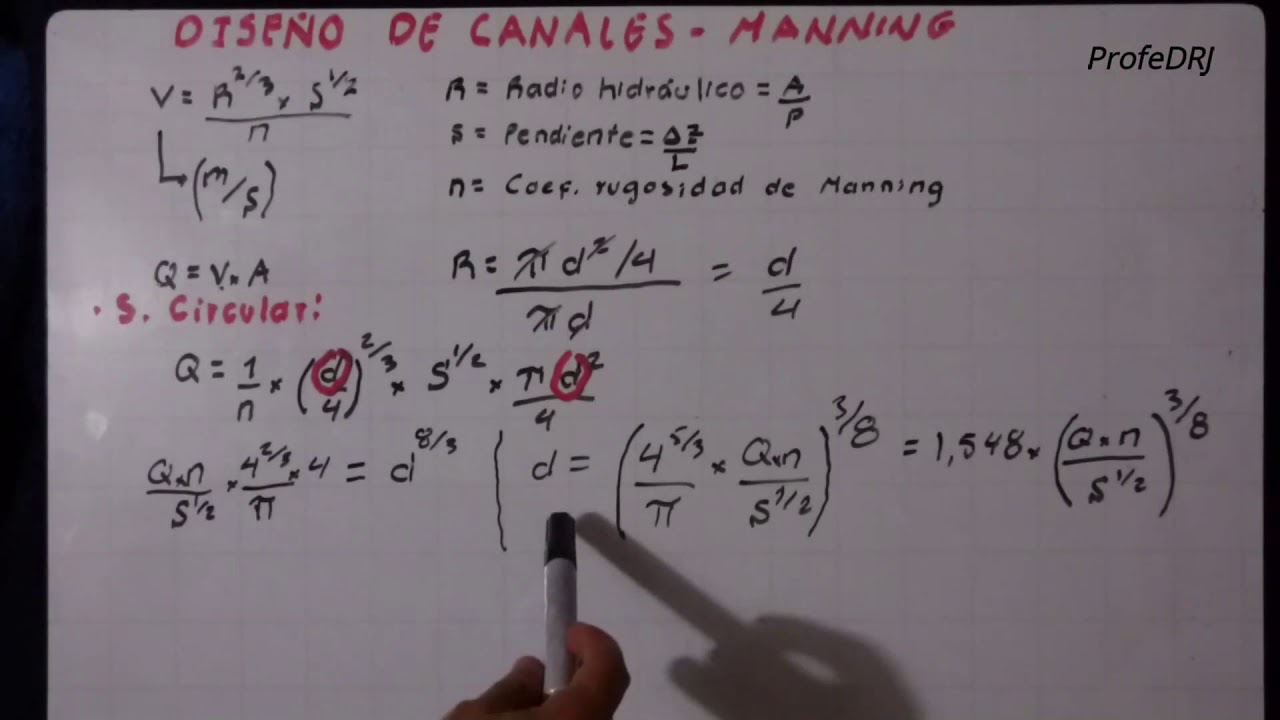 DISEÑO DE CANALES - MANNING
ProfeDRJ
V = R^2/3 × S^1/2 / n
(m/s)
R = Radio hidráulico = A/P
S = Pendiente = ΔZ/L
n = Coef. rugosidad de Manning
Q = V × A
R = π d^2/4 / π d = d/4
• S. Circular:
Q = 1/n × (d/4)^2/3 × S^1/2 × π d^2/4
Q×n/S^1/2 × 4^2/3/π × 4 = d^8/3
d = (4^5/3/π × Q×n/S^1/2)^3/8 = 1,548 × (Q×n/S^1/2)^3/8